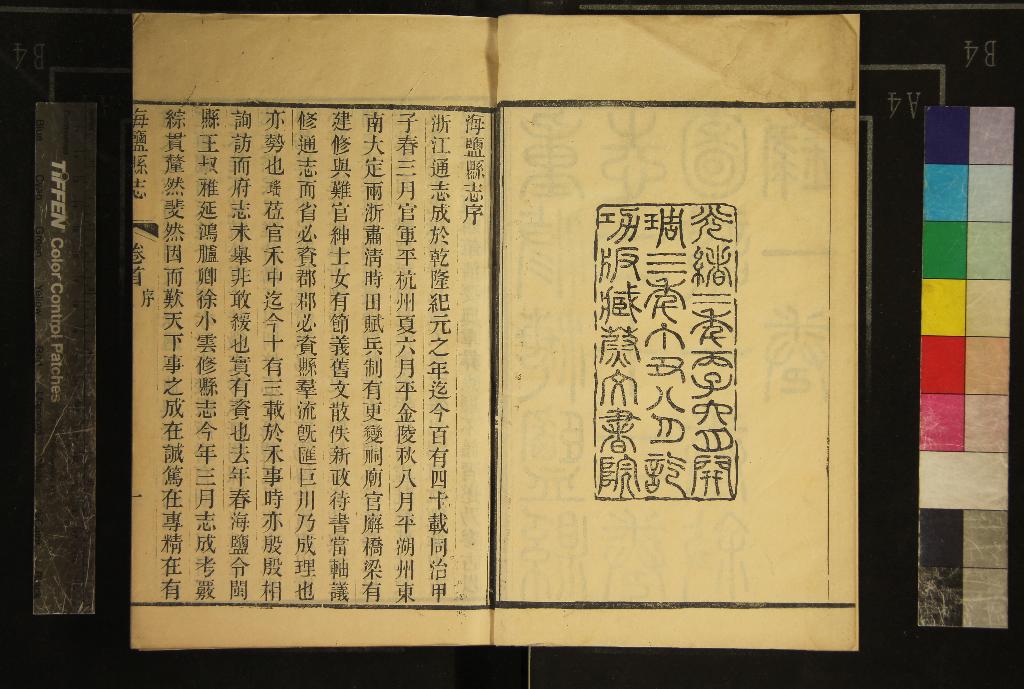 光緒二年丙子六月開
琱三年六丑八月訖
功版臧蔚文書院
海鹽縣志序
浙江通志成於乾隆紀元之年迄今百有四十載同治甲
子春三月官軍平杭州夏六月平金陵秋八月平湖州東
南大定兩浙肅清時田賦兵制有更變祠廟官廨橋梁有
建修與難官紳士女有節義舊文散佚新政待書當軸議
修通志而省必資郡郡必資縣羣流旣匯巨川乃成理也
亦勢也瑤莅官禾中迄今十有三載於禾事時亦殷殷相
詢訪而府志未舉非敢緩也實有資也去年春海鹽令閩
縣王叔雅延鴻臚卿徐小雲修縣志今年三月志成考覈
綜貫釐然斐然因而歎天下事之成在誠篤在專精在有
海鹽縣志
卷首
序
一
TIFFEN Color Control Patches
B4
A4
B4